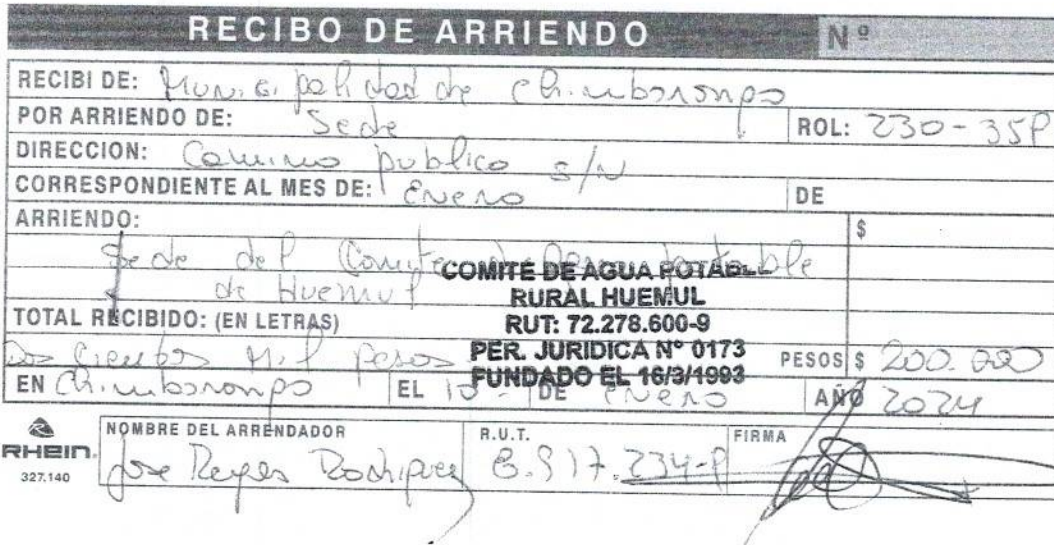 RECIBO DE ARRIENDO Nº
RECIBI DE: Municipalidad de Chimbarongo
POR ARRIENDO DE: Sede ROL: 230-358
DIRECCION: Camino publico s/N
CORRESPONDIENTE AL MES DE: Enero DE
ARRIENDO: $
Sede del Comite de Agua potable
de Huemul
COMITE DE AGUA POTABLE
RURAL HUEMUL
RUT: 72.278.600-9
PER. JURIDICA N° 0173
FUNDADO EL 16/3/1993
TOTAL RECIBIDO: (EN LETRAS)
Dos Cientos Mil pesos PESOS $ 200.000
EN Chimbarongo EL 15 DE Enero AÑO 2024
RHEIN. NOMBRE DEL ARRENDADOR R.U.T. FIRMA
327.140 Jose Reyes Rodriguez 8.917.234-